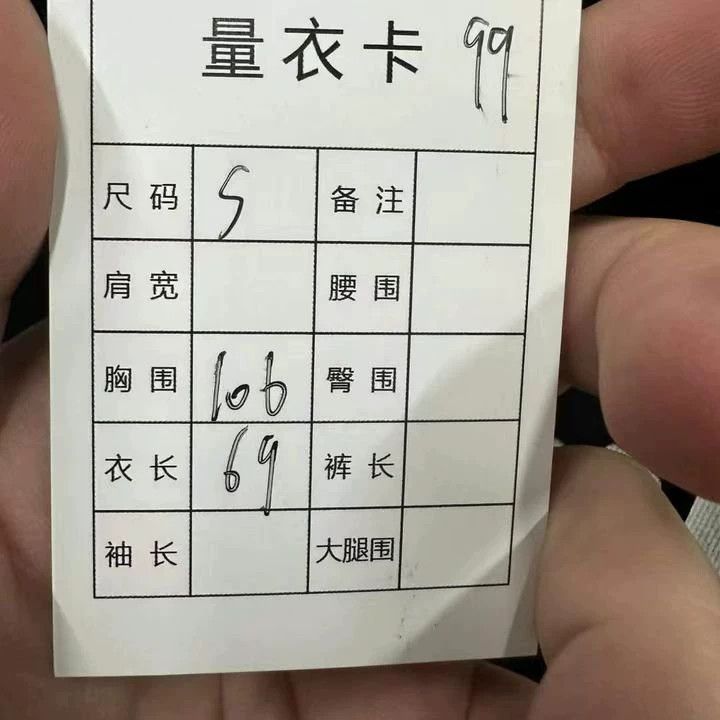 量衣卡 99
尺码 S 备注
肩宽 腰围
胸围 106 臀围
衣长 69 裤长
袖长 大腿围